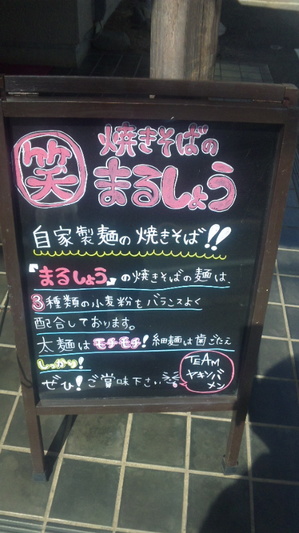 笑
焼きそばの
まるしょう
自家製麺の焼きそば!!
『まるしょう』の焼きそばの麺は、
3種類の小麦粉をバランスよく
配合しております。
太麺はモチモチ!細麺は歯ごたえ
しっかり!
ぜひ!ご賞味下さい
TEAM
ヤキソバ
メン